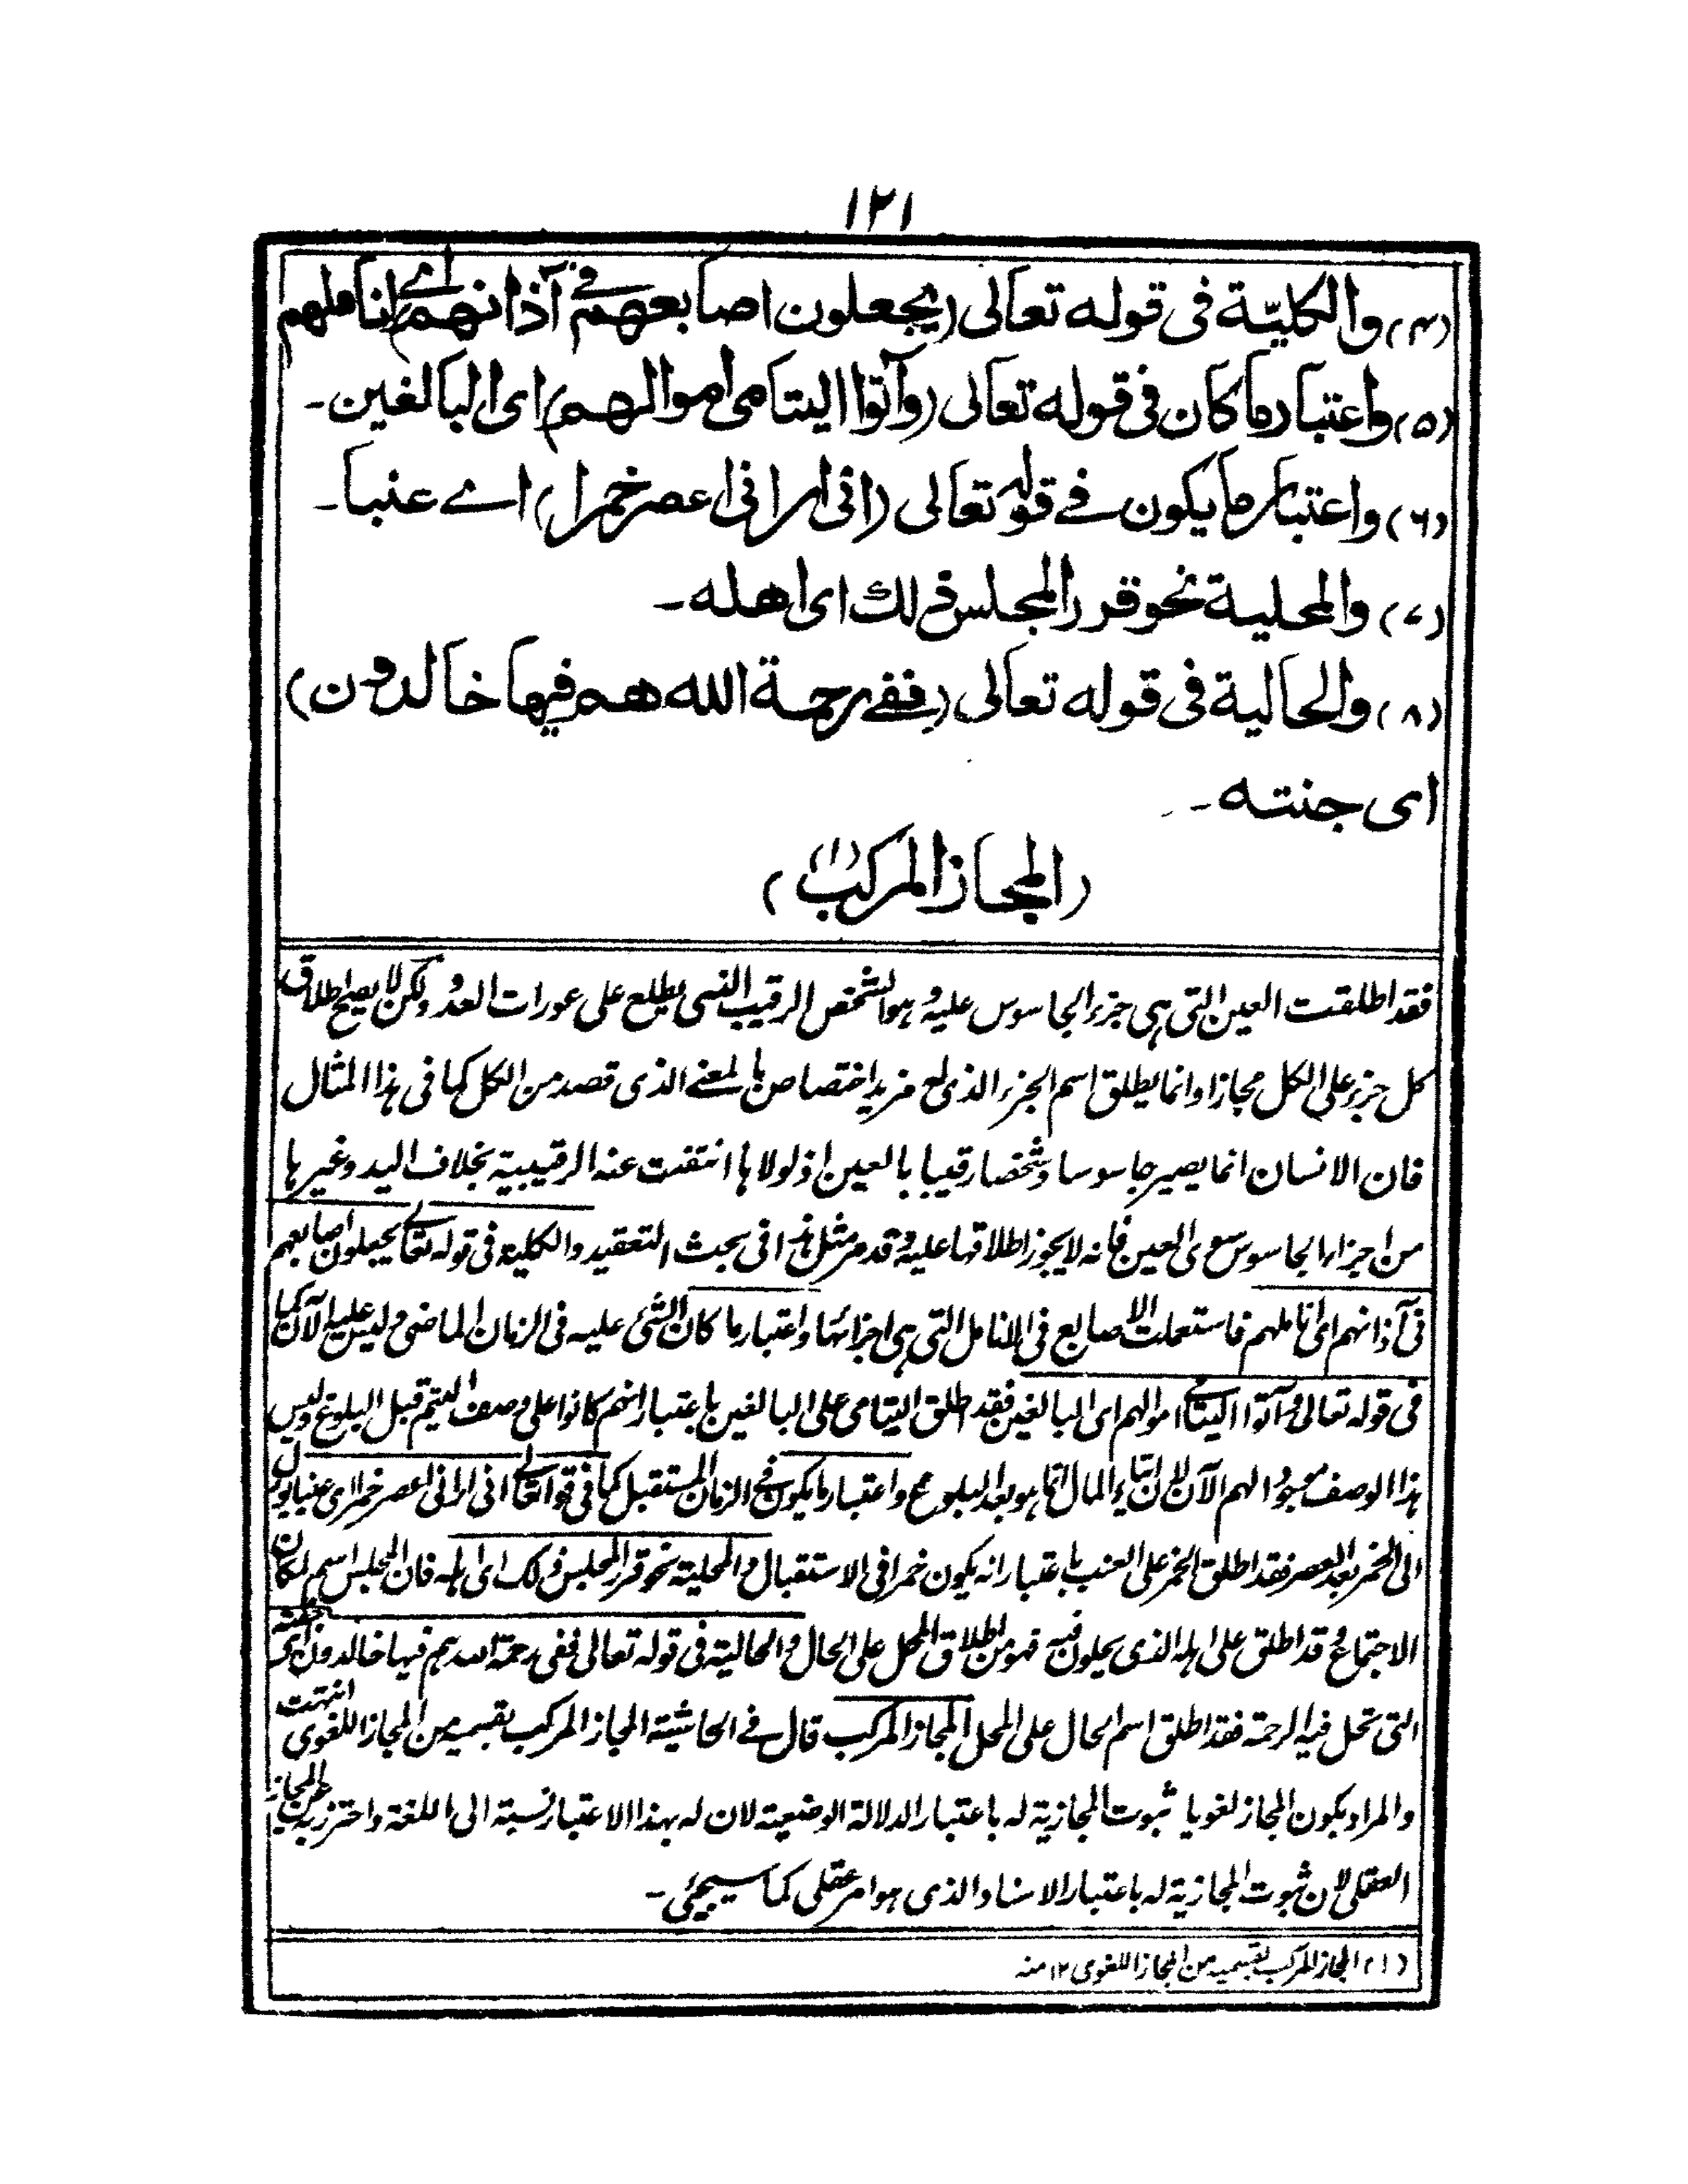 ١٢١
(٤) والكليّة فى قوله تعالى (يجعلون اصابعهم فى آذانهم) اى اناملهم
(٥) واعتبار ما كان فى قوله تعالى (وآتوا اليتامى اموالهم) اى البالغين۔
(٦) واعتبار ما يكون فے قوله تعالى (انى ارانى اعصر خمرا) اے عنبا۔
(٧) والمحلية نحو قرر المجلس ذلك اى اهله۔
(٨) والحالية فى قوله تعالى (ففے رحمة الله هم فيها خالدون)
اى جنته۔
(المجاز المركب (١))
فقد اطلقت العين التى هى جزء الجاسوس عليه وهو الشخص الرقيب الذى يطلع على عورات العدو ولكن لا يصح اطلاق
كل جزء على الكل مجازا وانما يطلق اسم الجزء الذى له مزيد اختصاص بالمعنے الذى قصد من الكل كما فى هذا المثال
فان الانسان انما يصير جاسوسا وشخصا رقيبا بالعين اذ لولاها انتفت عنه الرقيبية بخلاف اليد وغيرها
من اجزاء الجاسوس سوى العين فانه لا يجوز اطلاقها عليه وقد مر مثل هذا فى بحث التعقيد والكلية فى قوله تعالے يجعلون اصابعهم
فى آذانهم اى اناملهم فاستعملت الاصابع فى الانامل التى هى اجزائها واعتبار ما كان الشئ عليه فى الزمان الماضى وليس عليه الآن كما
فى قوله تعالى وآتوا اليتامے اموالهم اى البالغين فقد اطلق اليتامى على البالغين باعتبار انهم كانوا على وصف اليتم قبل البلوغ وليس
هذا الوصف موجودا لهم الآن لان ايتاء المال انما هو بعد البلوغ واعتبار ما يكون فے الزمان المستقبل كما فى قوله تعالے انى ارانى اعصر خمرا اى عنبا يؤل
الى الخمر بعد العصر فقد اطلق الخمر على العنب باعتبار انه يكون خمرا فى الاستقبال والمحلية نحو قرر المجلس ذلك اى اهله فان المجلس اسم لمكان
الاجتماع وقد اطلق على اهله الذى يحلون فيه فهو من اطلاق المحل على الحال والحالية فى قوله تعالى ففى رحمة الله هم فيها خالدون اى جنته
التى تحل فيه الرحمة فقد اطلق اسم الحال على المحل المجاز المركب قال فے الحاشية المجاز المركب بقسميه من المجاز اللغوى انتهت
والمراد بكون المجاز لغويا ثبوت المجازية له باعتبار الدلالة الوضعية لان له بهذا الاعتبار نسبة الى اللغة واحترز به عن المجاز
العقلى لان ثبوت المجازية له باعتبار الاسناد الذى هو امر عقلى كما سيجئ۔
(١) المجاز المركب بقسميه من المجاز اللغوى ١٢ منه